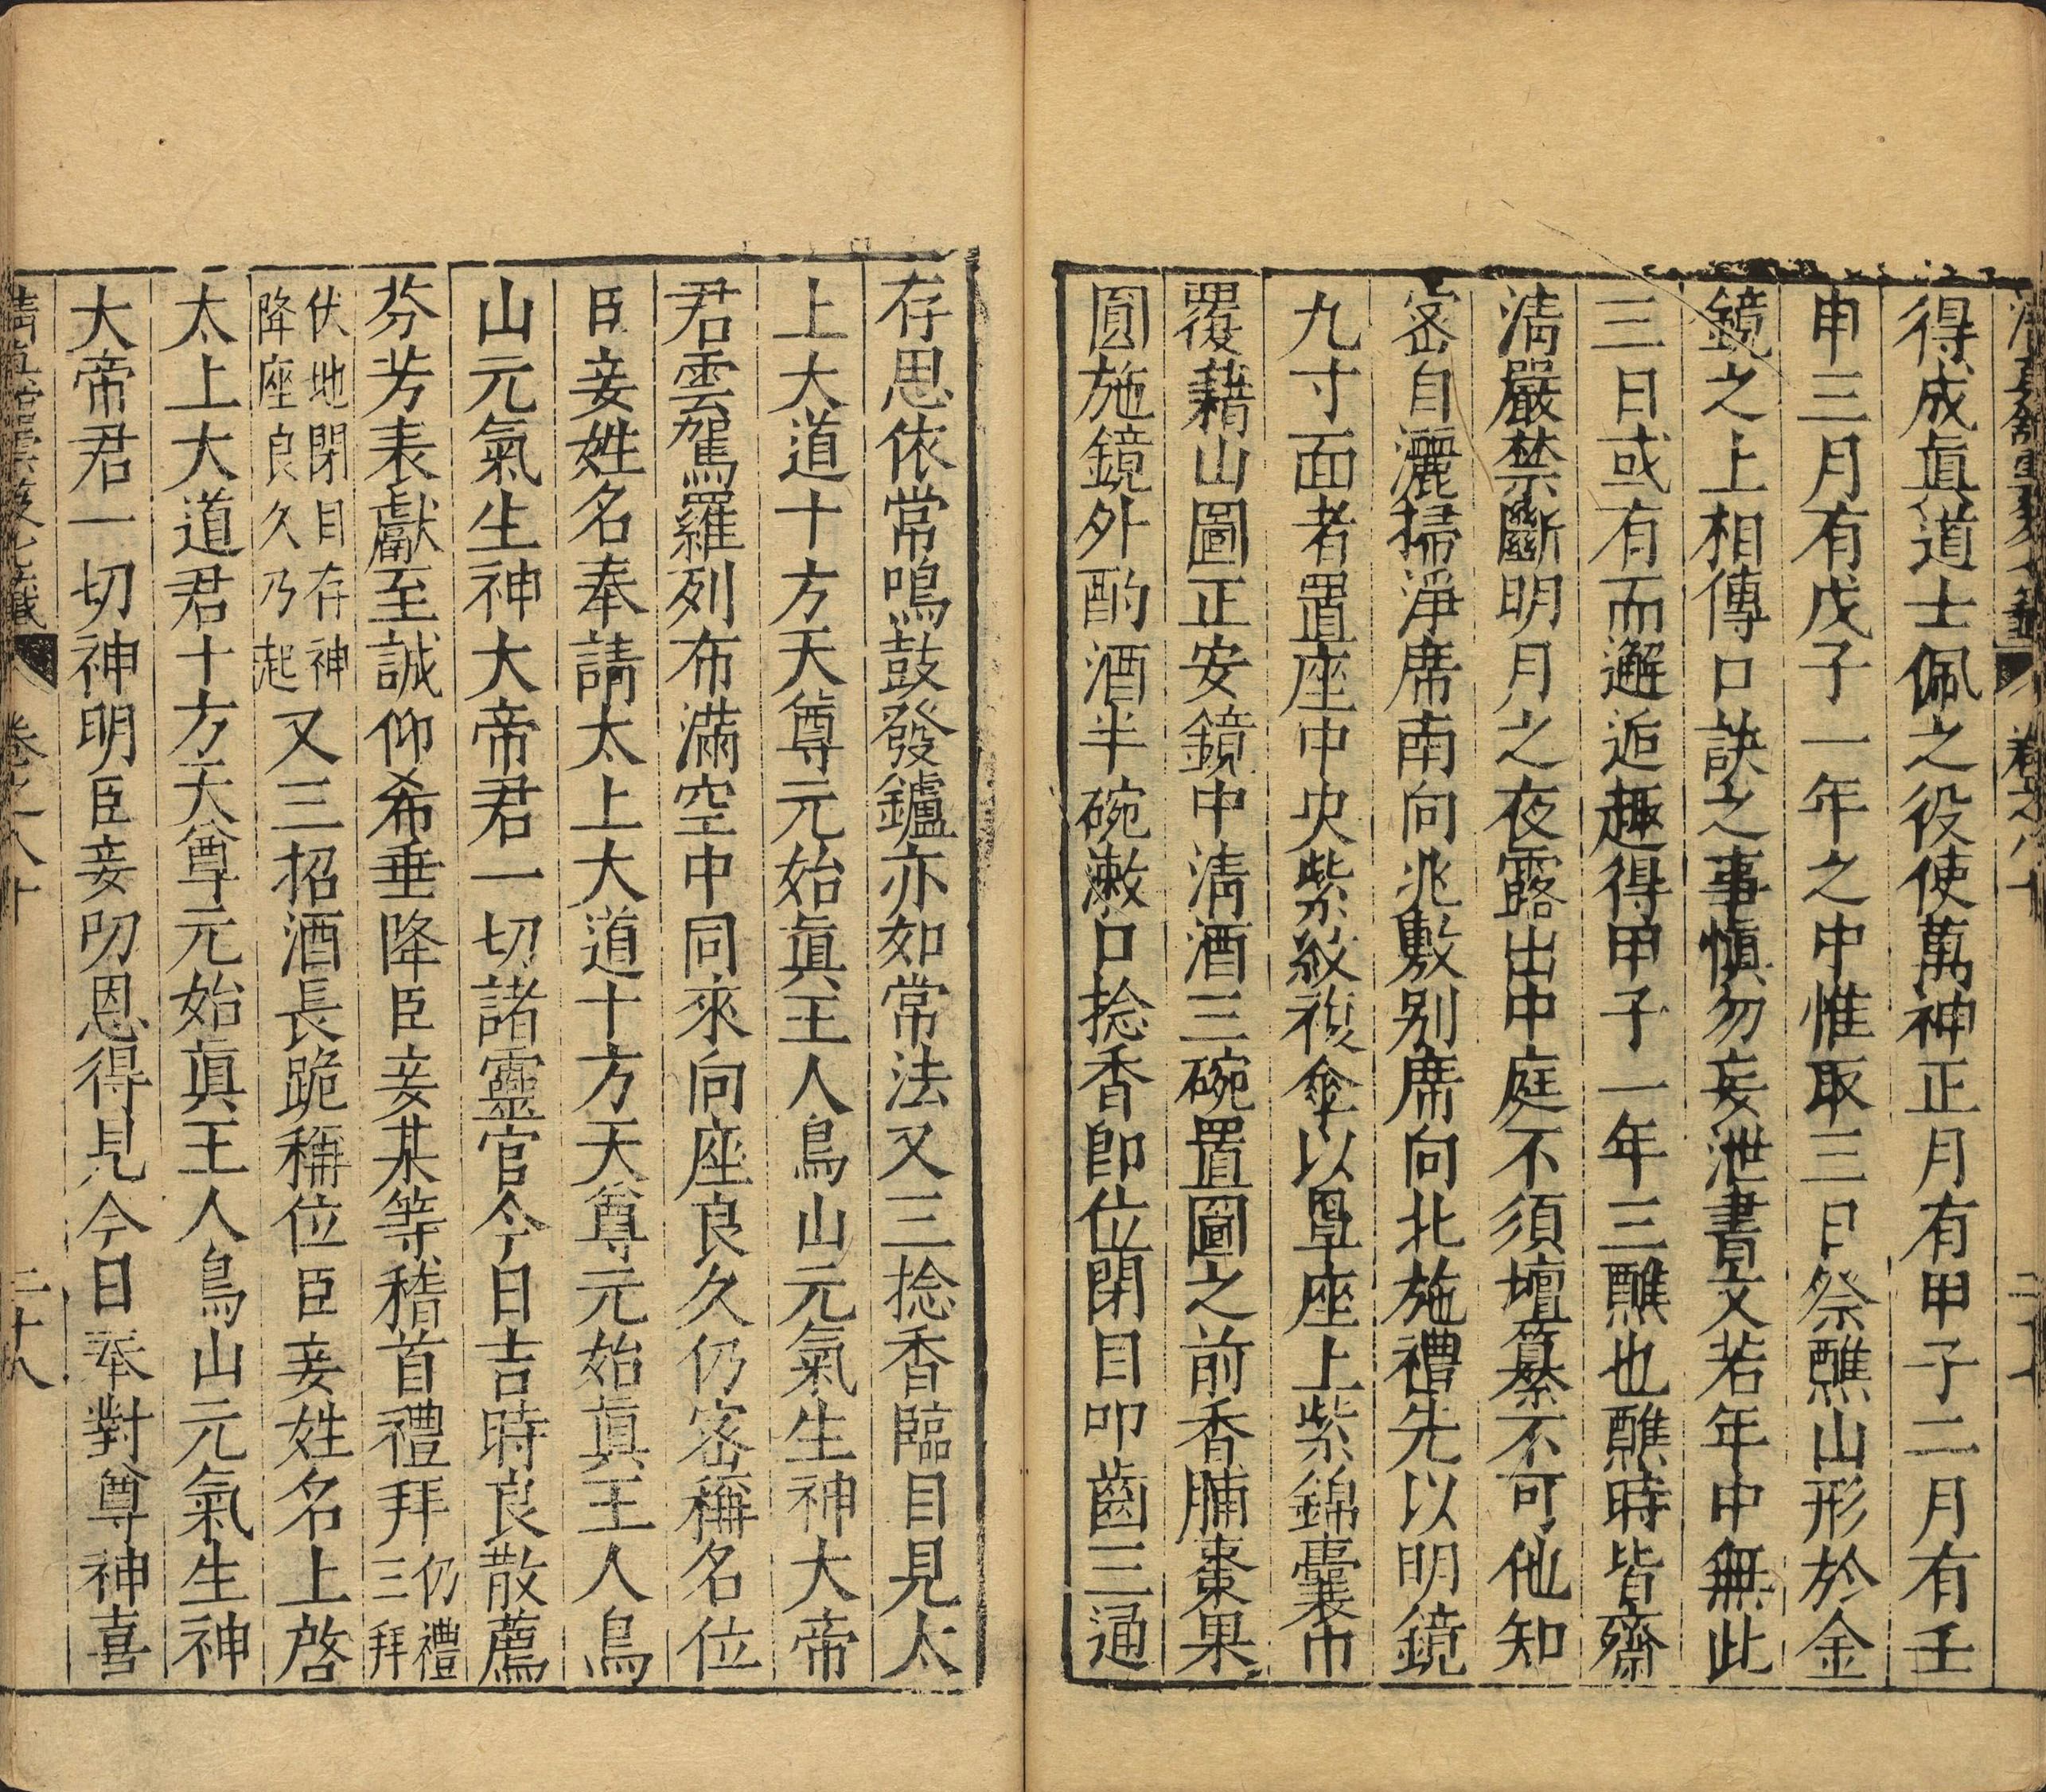 得成眞道士佩之役使萬神正月有甲子二月有壬
申三月有戊子一年之中惟取三日祭醮山形於金
鏡之上相傳口訣之事愼勿妄泄書文若年中無此
三日或有而邂逅趣得甲子一年三醮也醮時皆齋
淸嚴禁斷明月之夜露出中庭不須壇纂不可他知
密自灑掃淨席南向兆敷别席向北施禮先以明鏡
九寸面者置座中央紫紋複傘以覃座上紫錦囊巾
覆藉山圖正安鏡中淸酒三碗置圖之前香脯棗果
圓施鏡外酌酒半碗漱口捻香卽位閉目叩齒三通
存思依常鳴鼓發鑪亦如常法又三捻香臨目見太
上大道十方天尊元始眞王人鳥山元氣生神大帝
君雲駕羅列布滿空中同來向座良久仍密稱名位
臣妾姓名奉請太上大道十方天尊元始眞王人鳥
山元氣生神大帝君一切諸靈官今日吉時良散薦
芬芳表獻至誠仰希垂降臣妾某等稽首禮拜仍禮三拜
伏地閉目存神降座良久乃起又三招酒長跪稱位臣妾姓名上啓
太上大道君十方天尊元始眞王人鳥山元氣生神
大帝君一切神明臣妾叨恩得見今日奉對尊神喜
卷之八十 二十八